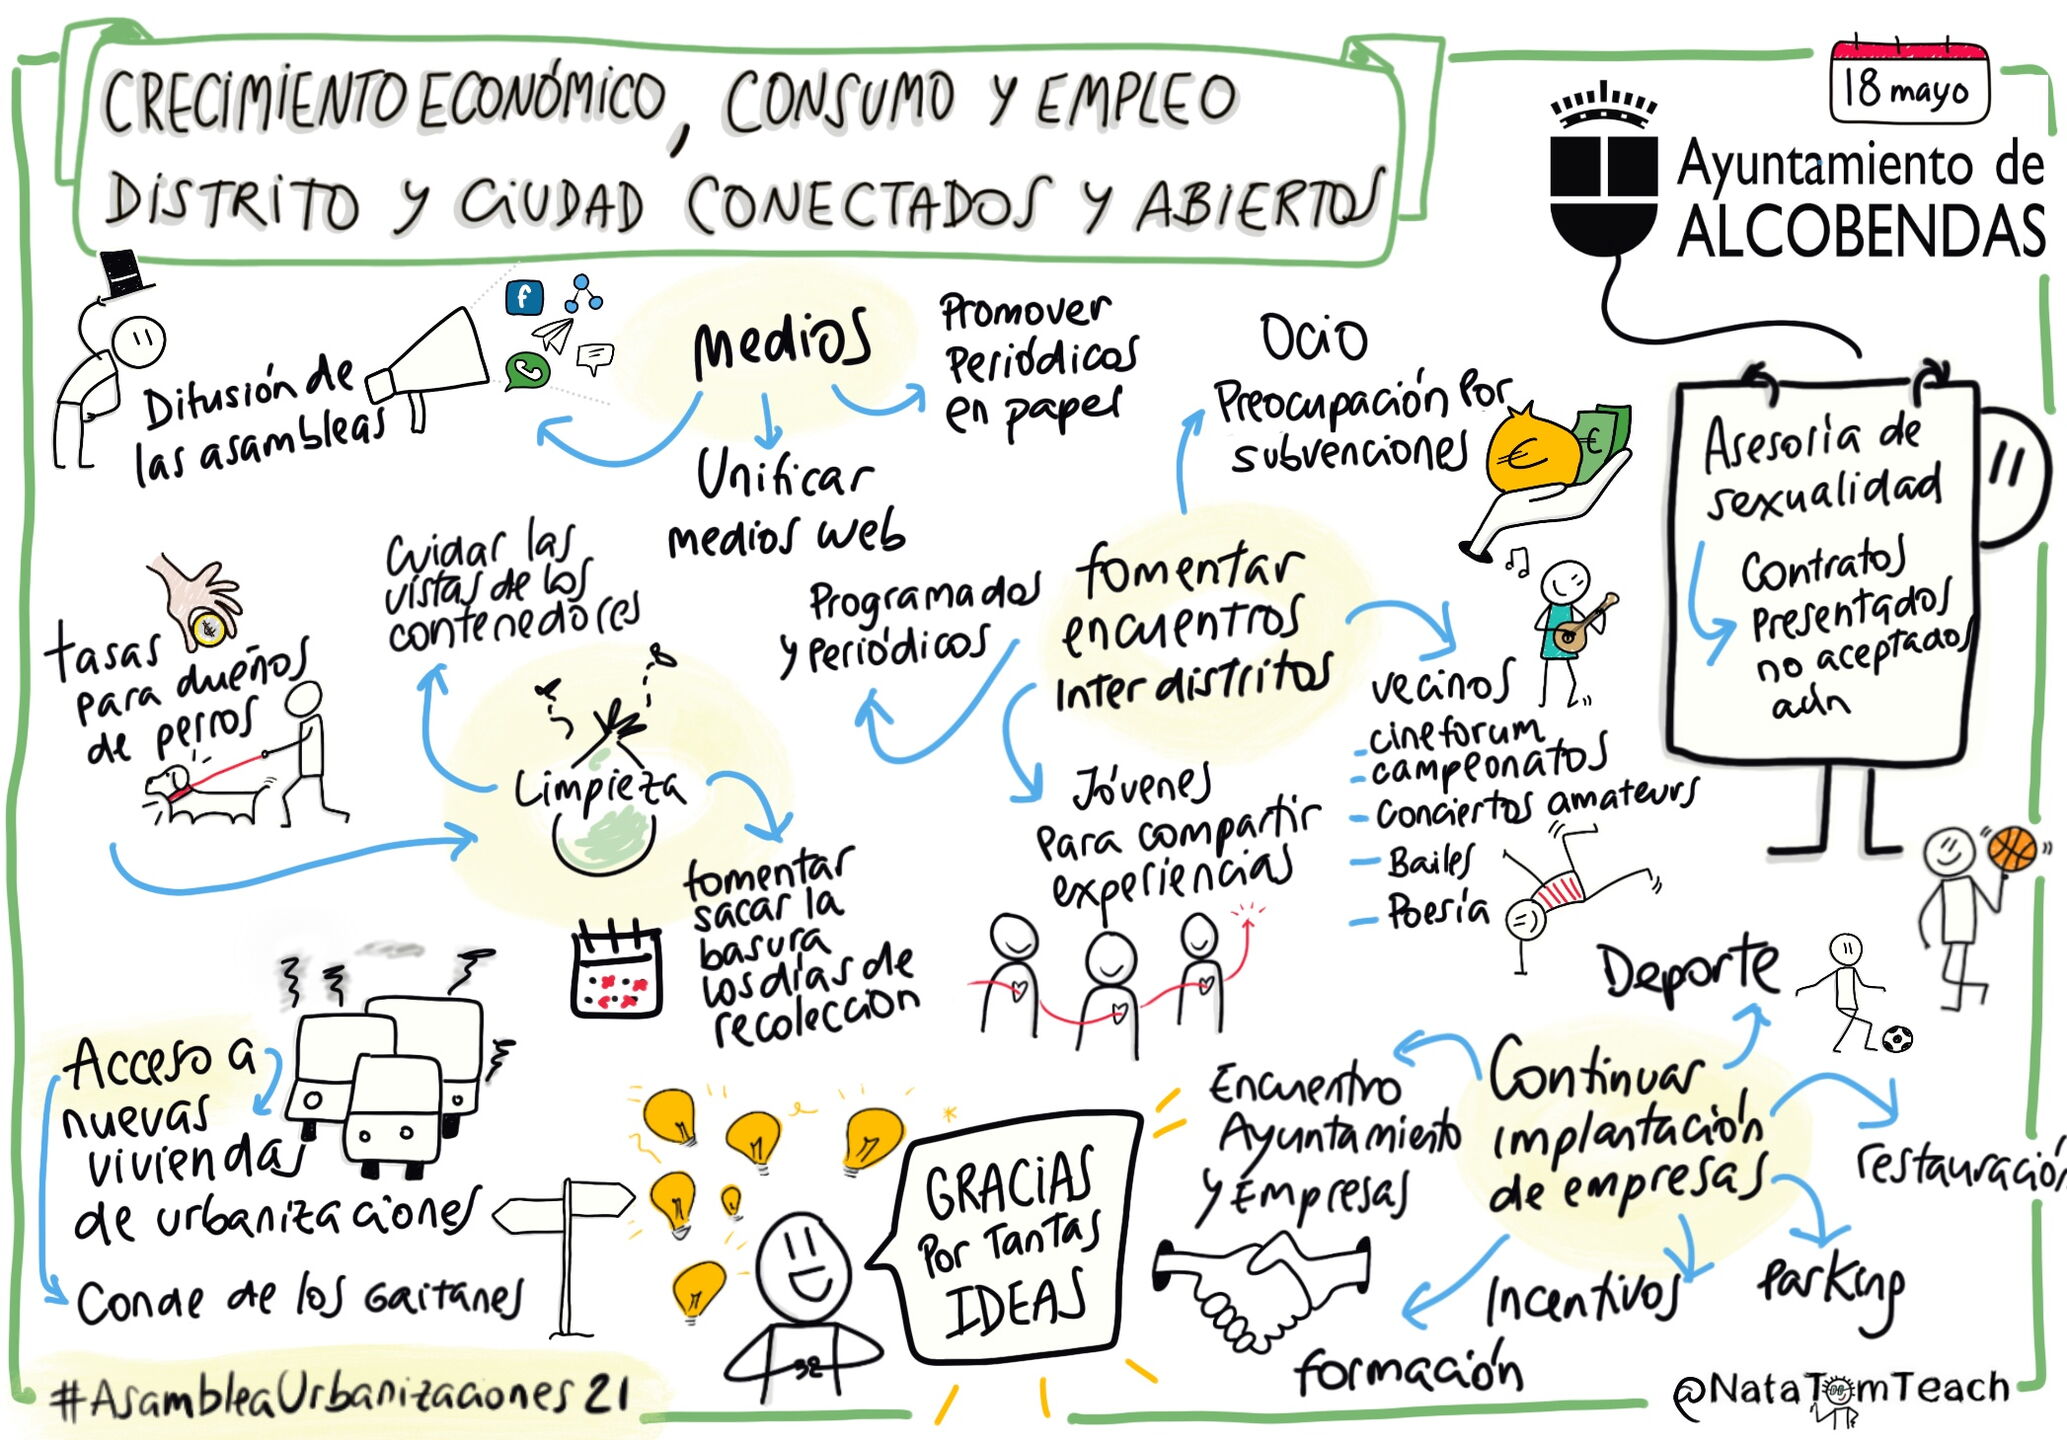 CRECIMIENTO ECONÓMICO, CONSUMO Y EMPLEO
DISTRITO Y CIUDAD CONECTADOS Y ABIERTOS
18 mayo
Ayuntamiento de
ALCOBENDAS
Difusión de
las asambleas
f
Medios
Promover
Periódicos
en papel
Unificar
medios web
Ocio
Preocupación por
subvenciones
€
€
Asesoría de
sexualidad
Contratos
Presentados
no aceptados
aún
tasas
para dueños
de perros
€
Cuidar las
vistas de los
contenedores
Limpieza
fomentar
sacar la
basura
los días de
recolección
Programados
y periódicos
fomentar
encuentros
Inter distritos
Jóvenes
Para compartir
experiencias
vecinos
- cineforum
- campeonatos
- Conciertos amateurs
- Bailes
- Poesía
Acceso a
nuevas
viviendas
de urbanizaciones
Conde de los Gaitanes
GRACIAS
Por Tantas
IDEAS
Deporte
Encuentro
Ayuntamiento
y Empresas
Continuar
implantación
de empresas
restauración
Parking
Incentivos
formación
#AsambleaUrbanizaciones21
@NataTomTeach